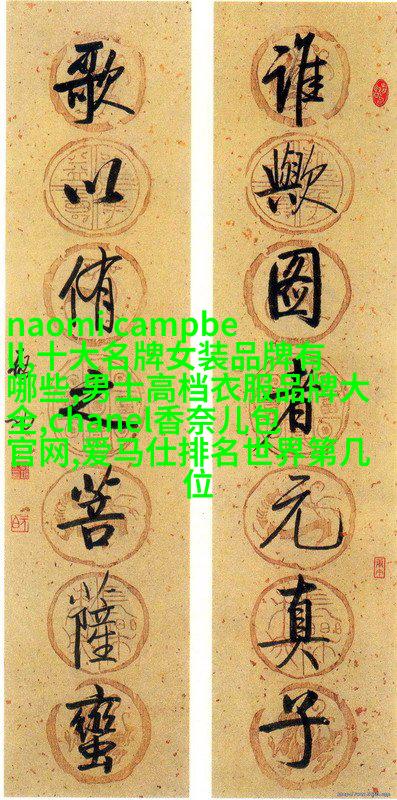 谁歟图者元真子
歌以侑之菩薩蠻
naomi campbe
ll,十大名牌女装品牌有
哪些,男士高档衣服品牌大
全,chanel香奈儿包
官网,爱马仕排名世界第几
位